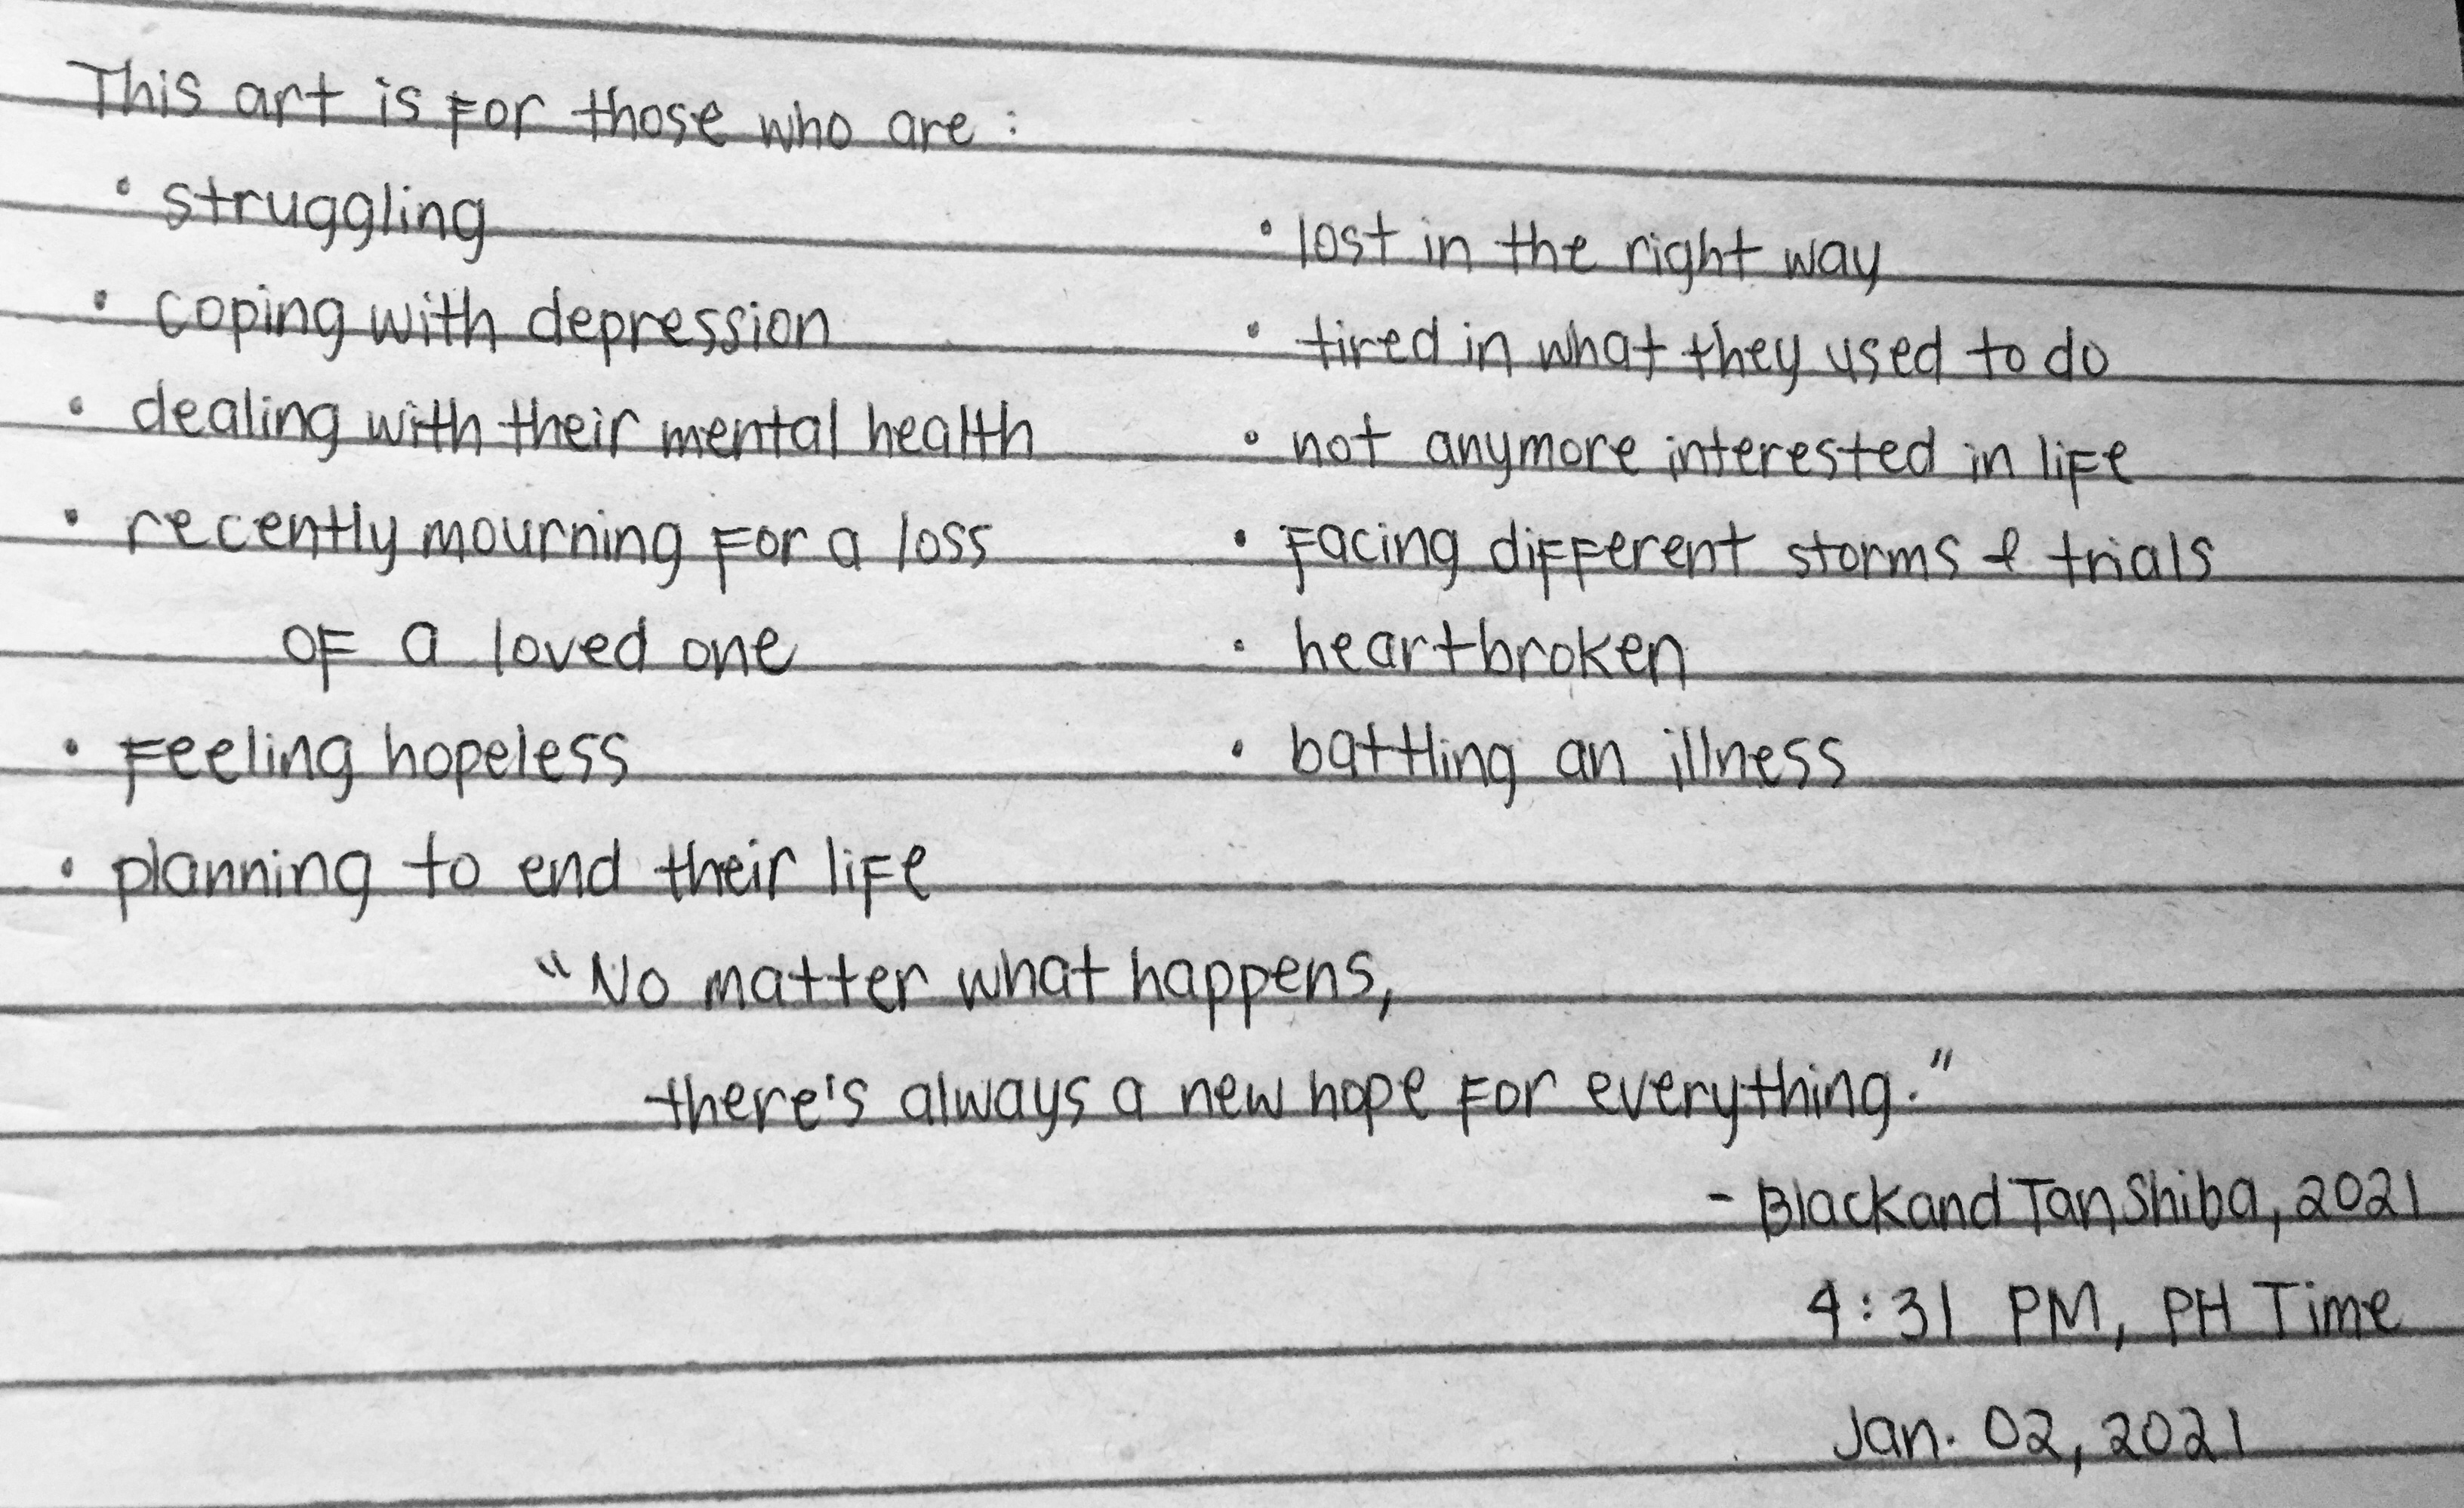 This art is for those who are :
• struggling
• coping with depression
• dealing with their mental health
• recently mourning for a loss
of a loved one
• feeling hopeless
• planning to end their life
• lost in the right way
• tired in what they used to do
• not anymore interested in life
• facing different storms & trials
• heartbroken
• battling an illness
"No matter what happens,
there's always a new hope for everything."
- BlackandTanShiba, 2021
4:31 PM, PH Time
Jan. 02, 2021